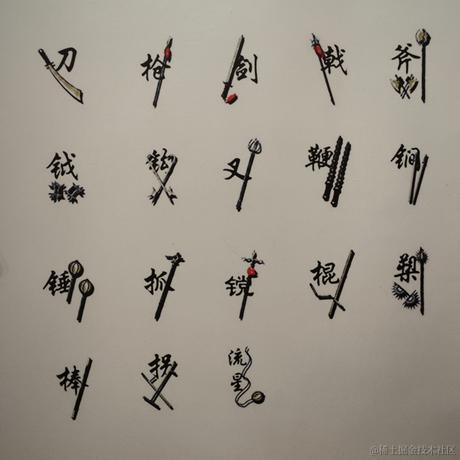 刀 枪 剑 戟 斧
钺 钩 叉 鞭 锏
锤 抓 镋 棍 槊
棒 拐 流星
@稀土掘金技术社区